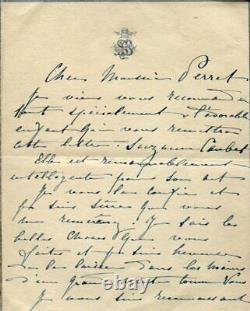 Cher Monsieur Perret
je viens vous recommander
tout spécialement l'adorable
enfant qui vous remettra
cette lettre. Suzanne Caubet
Elle est remarquablement
intelligente pour son art
Je vous la confie et
je suis sûre que vous
me remercierez. Je sais les
belles choses que vous
faites et je suis heureuse
de la dans les mains
d'un grand comme vous
Je vous suis reconnaissante